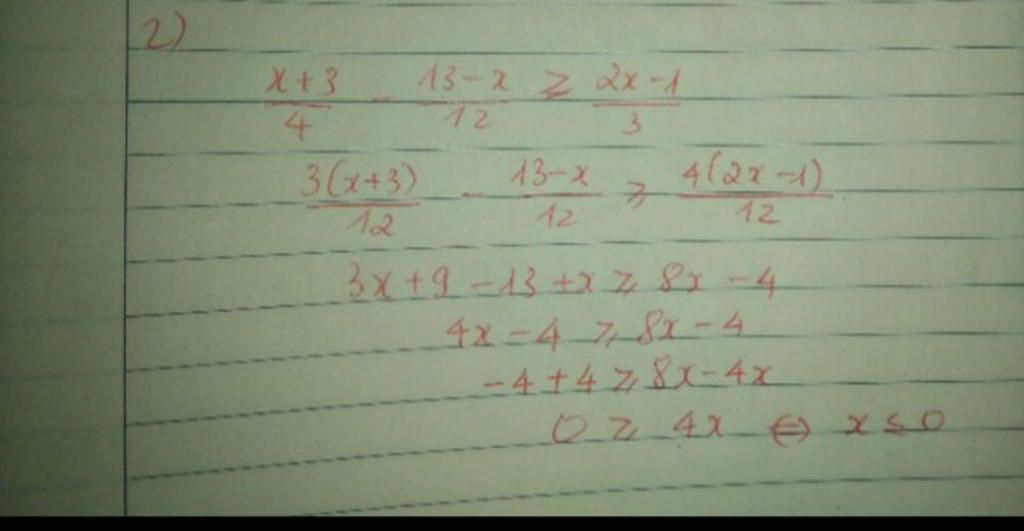 2)
(x+3)/4 - (13-x)/12 ⩾ (2x-1)/3
3(x+3)/12 - (13-x)/12 ⩾ 4(2x-1)/12
3x+9-13+x ⩾ 8x-4
4x-4 ⩾ 8x-4
-4+4 ⩾ 8x-4x
0 ⩾ 4x ⇔ x ≤ 0